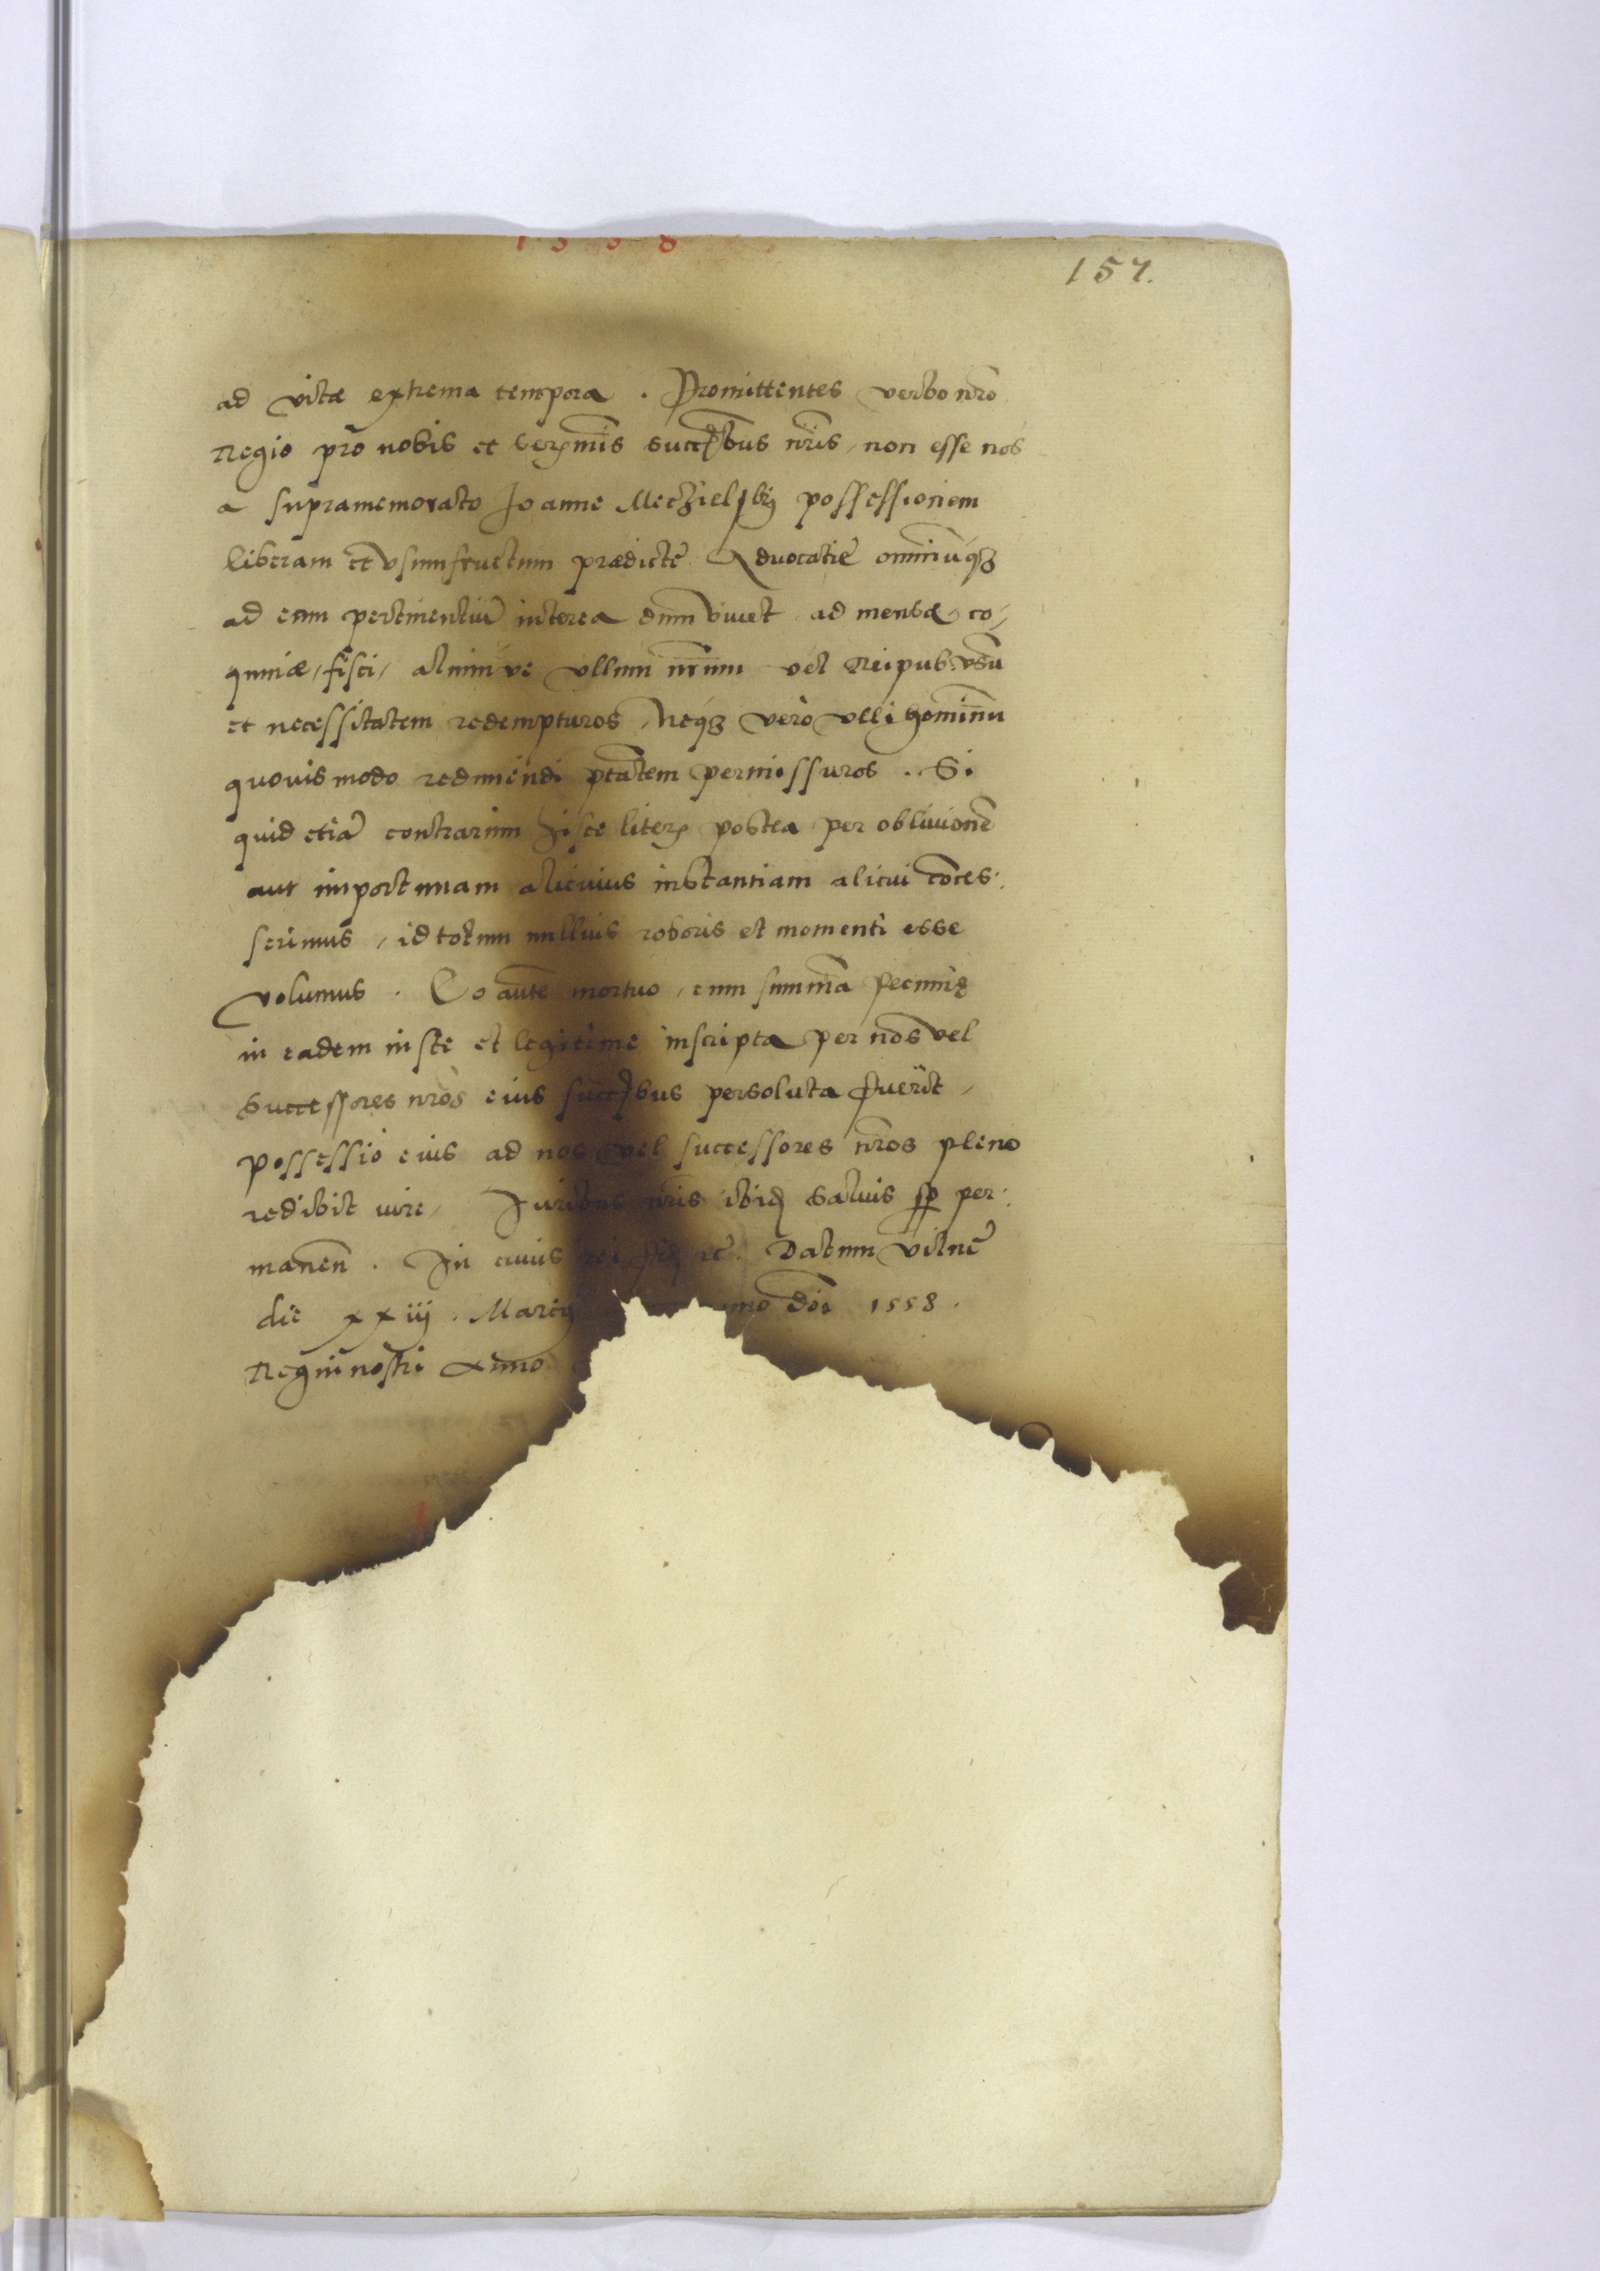 1558
157.
ad vitæ extrema tempora. Promittentes verbo nr̄o
Regio pro nobis et Serm̄is succ̄bus nr̄is, non esse nos
a supramemorato Joanne possessionem
liberam et vsumfructum prædictæ Aduocatiæ omniūqȝ
ad eam pertinentiū interea dum viuet ad mensæ, co-
quiniæ, fisci, aliumve vllum nr̄um vel Reipub. vsū
et necessitatem redempturos, Neqȝ vero vlli hominum
quouis modo redimendi ptātem permissuros. Si
quid etiā contrarium hisce literis postea per obliuionē
aut importunam alicuius instantiam alicui cōces-
serimus, id totum nullius roboris et momenti esse
volumus. Eo autē mortuo, cum summa pecuniæ
in eadem iuste et legitime inscripta per nos vel
Successores nr̄os eius succ̄bus persoluta fuerit,
possessio eius ad nos vel successores nr̄os pleno
redibit iure, Juribus nr̄is ibid saluis sp̄ per-
manen̄. In cuius rei fid etc. Datum Vilnæ
die xxiij. Martij mo dōi 1558.
Regni nostri Anno